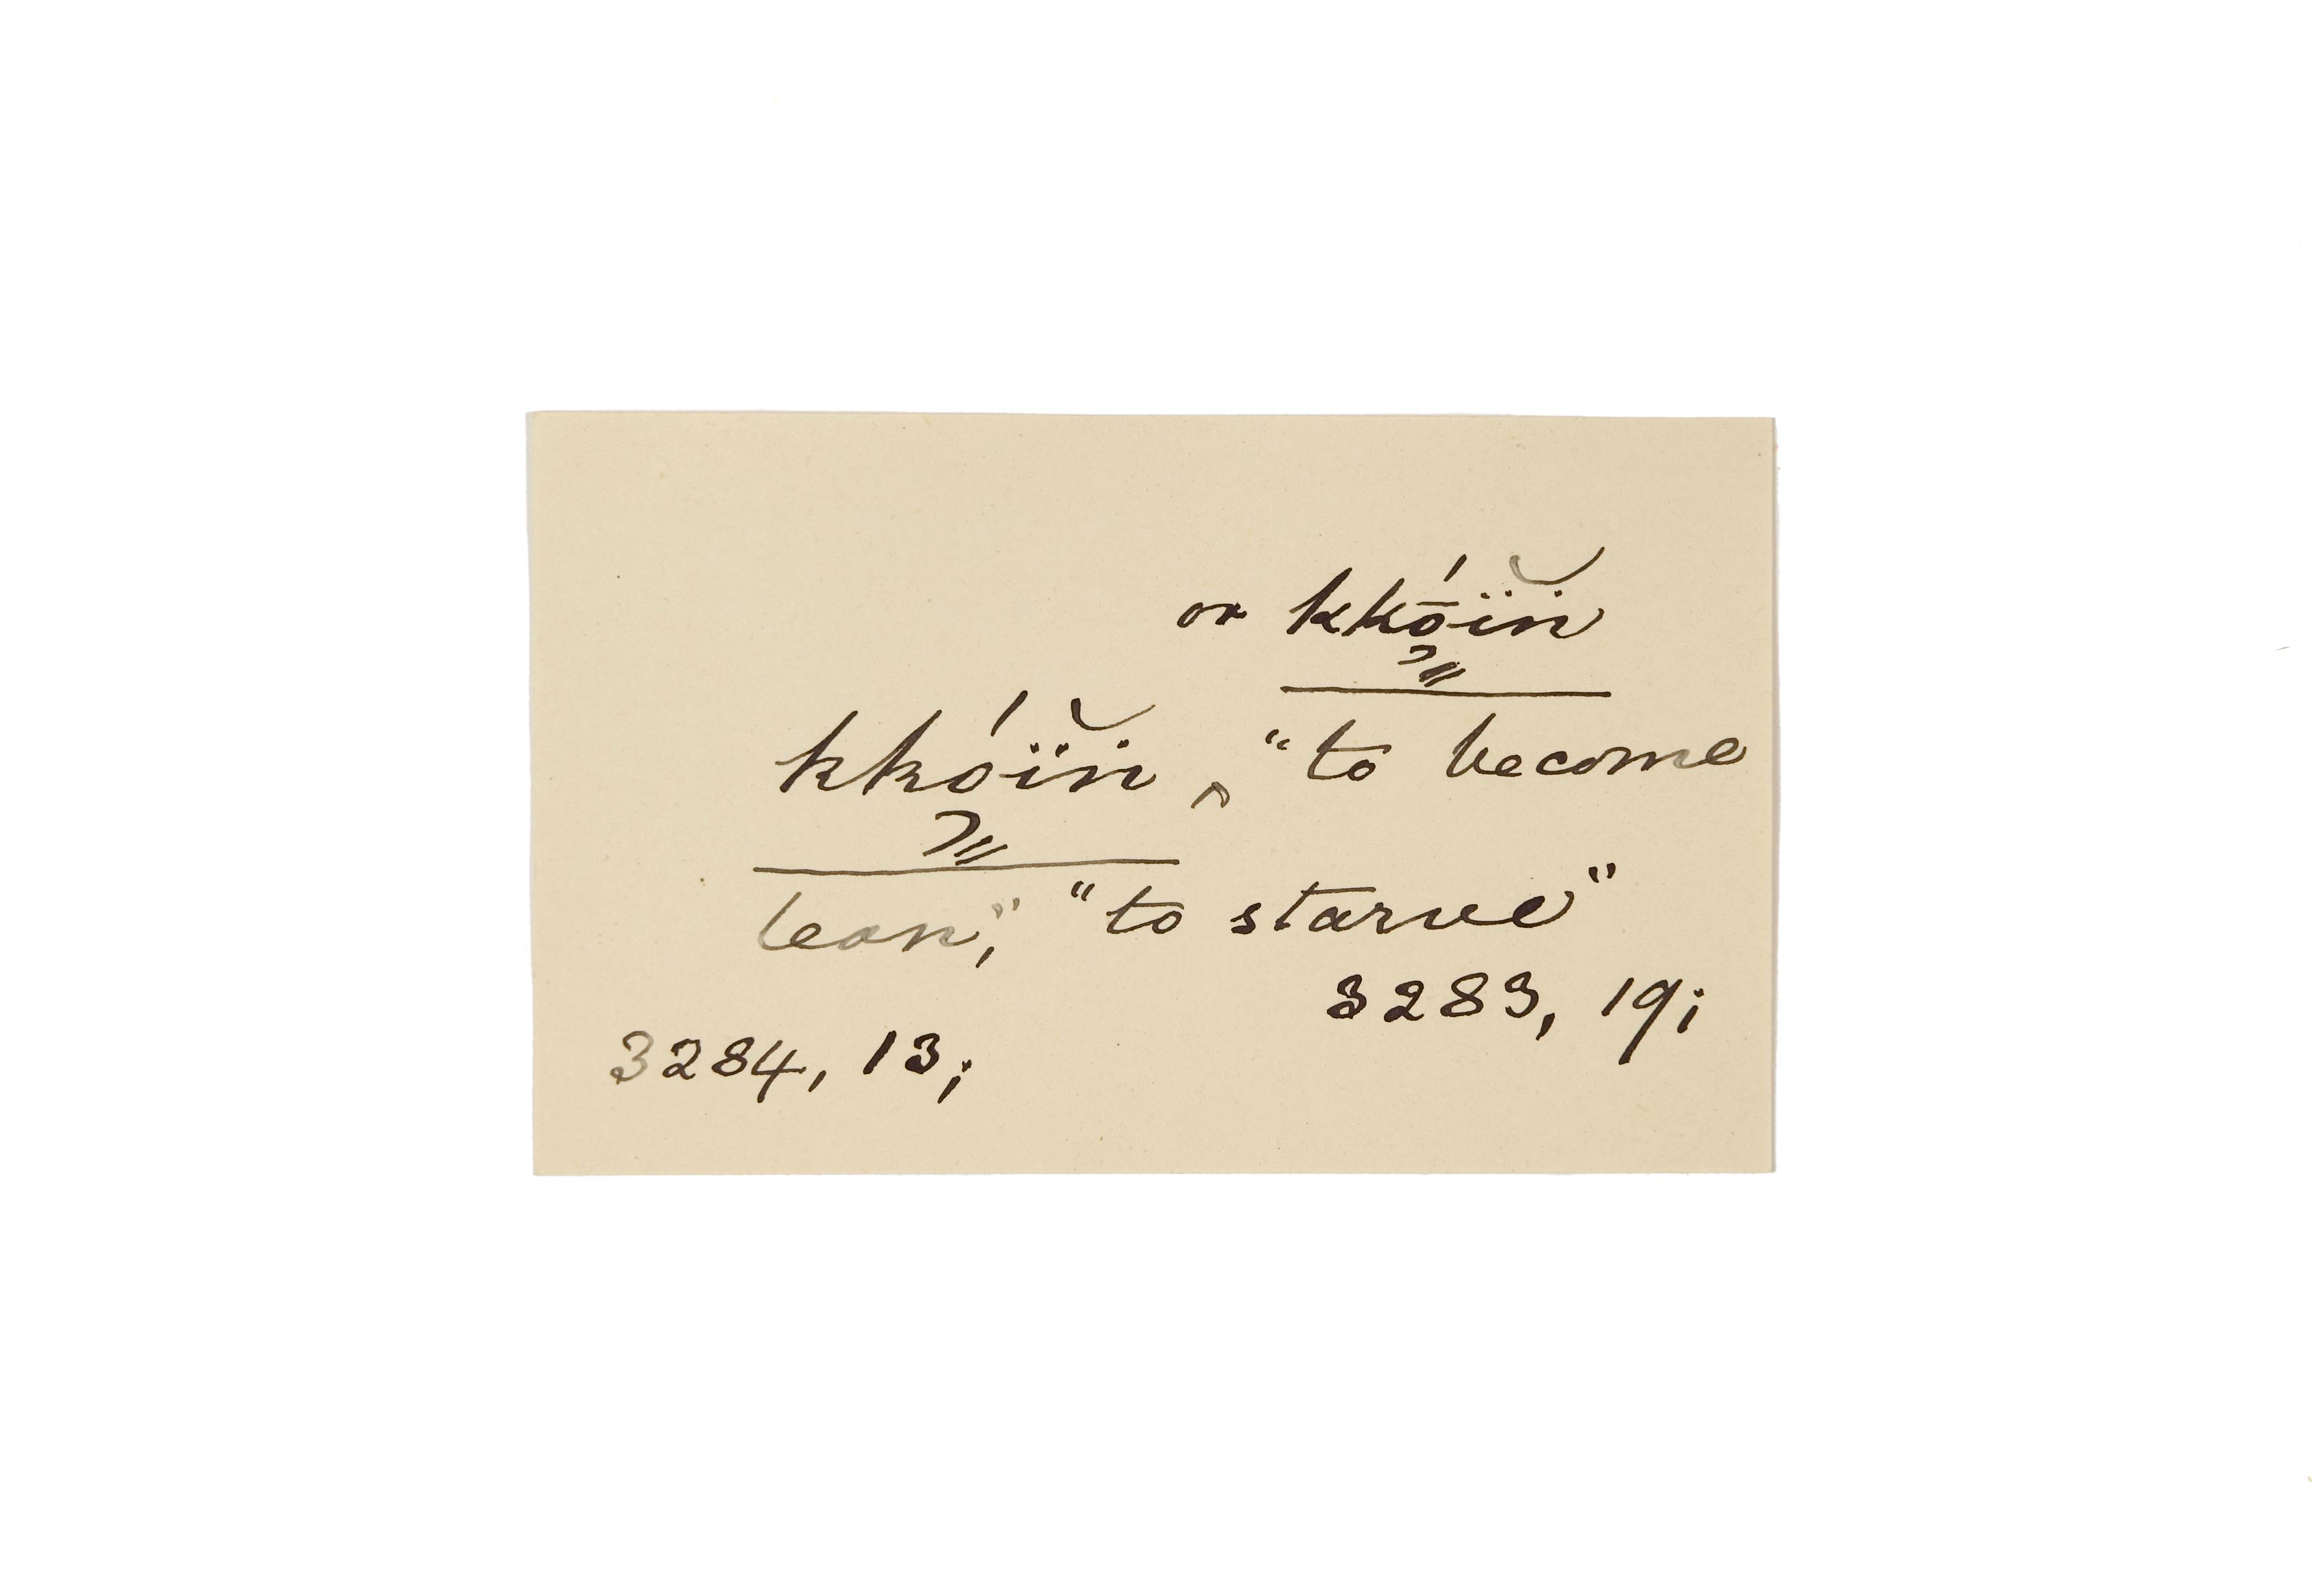 or kkṓïṅ
kkóïṅ ‸ "to become
lean", "to starve"
3283, 19;
3284, 13;